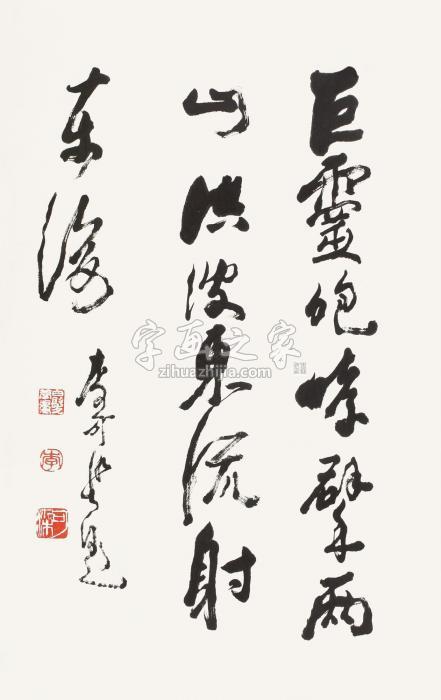 巨靈咆哮擘兩
山洪波東流射
東海
李可染題
字画之家
zihuazhijia.com